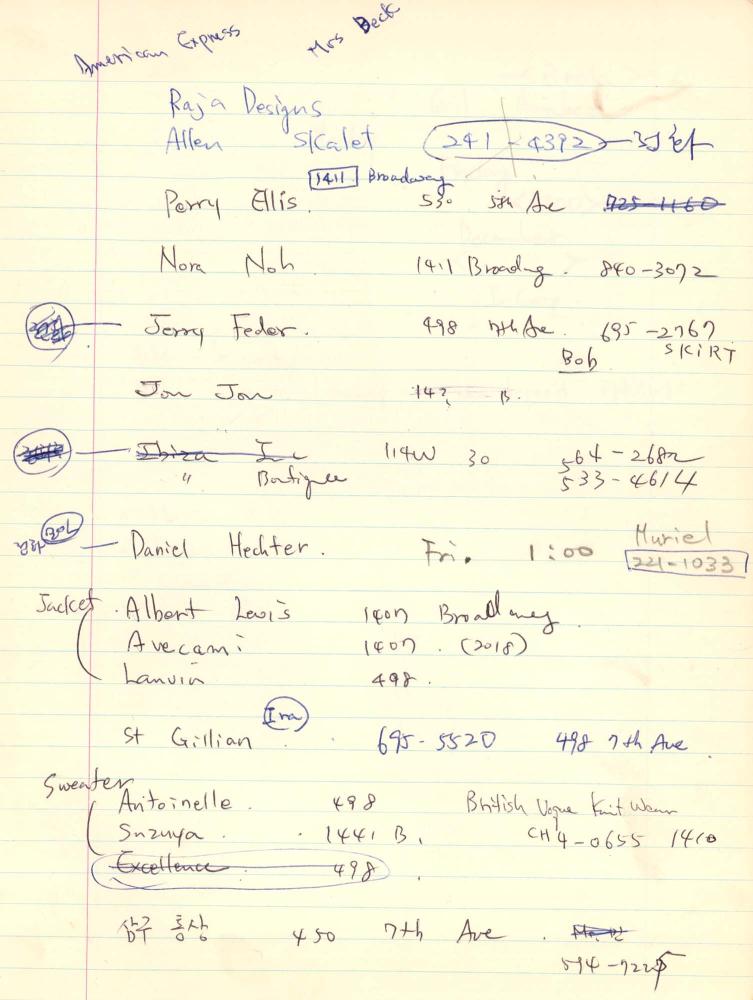 American Express Mrs Beck
Raja Designs
Allen Skalet 241-4392
1411 Broadway
Perry Ellis. 530 5th Ave 725-1160
Nora Noh. 1411 Broadway. 840-3072
Jerry Feder. 498 7th Ave. 695-2767
Bob SKIRT
Jon Jon 142 B.
Ibiza Inc 114W 30 564-2682
" Boutique 533-4614
Daniel Hechter. Fri. 1:00 Muriel
221-1033
Jacket. Albert Levis 1407 Broadway
Avecami 1407. (2018)
Lanvin 498.
Ira
St Gillian 695-5520 498 7th Ave
Sweater
Antoinelle. 498 British Vogue Knit Wear
Suzuya. 1441 B. CH4-0655 1410
Excellence 498
삼주 통상 450 7th Ave.
594-7225